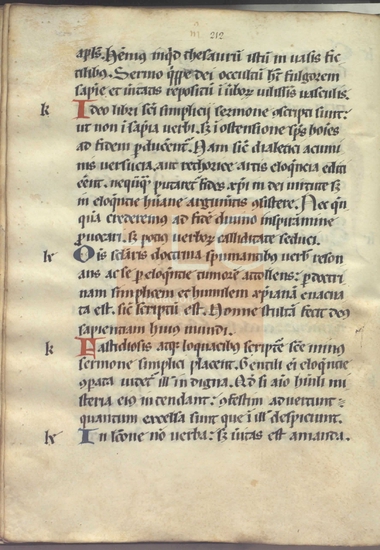 212
apłs. Hemus inqd thesaurū istū in uasis fic
tilibus. Sermo qppe dei occultū ht fulgorem
sapie et ueritatis repositū i uboꝝ uilissis uasculis.
k Ideo libri sci simplicii sermone cōscripti sunt:
ut non i sapia uerbi. sꝫ i ostensione sps hoies
ad fidem pducent. Nam si dialetici acumi
nis uersucia, aut rethorice artis eloqncia editi
cent. neqqm putaret fides xpi in dei uirtute sꝫ
in eloqntie humane argumtis cōsistere. Nec qm
qua crederemus ad fidē diuino inspiramine
puocari. sꝫ potius uerboꝝ calliditate seduci.
lx Ois sclaris doctrina spumantibus uerb reson
ans ac se p eloqntie tumorē attollens: p doctri
nam simplicem et humilem xpianā euacua
ta est. sic scriptū est. Nonne stultā fecit deus
sapientiam huius mundi.
k Fastidiosis atqꝫ loquacibus scripte sce minus
sermone simplici placent. Gentili ei eloqntie
cōpata uidet ill indigna. Qd si aio humili mi
steria eius intendant: cōfestim aduertunt
quantum excelsa sunt que i ill despiciunt.
lx In lectione nō uerba: sꝫ ueritas est amanda.